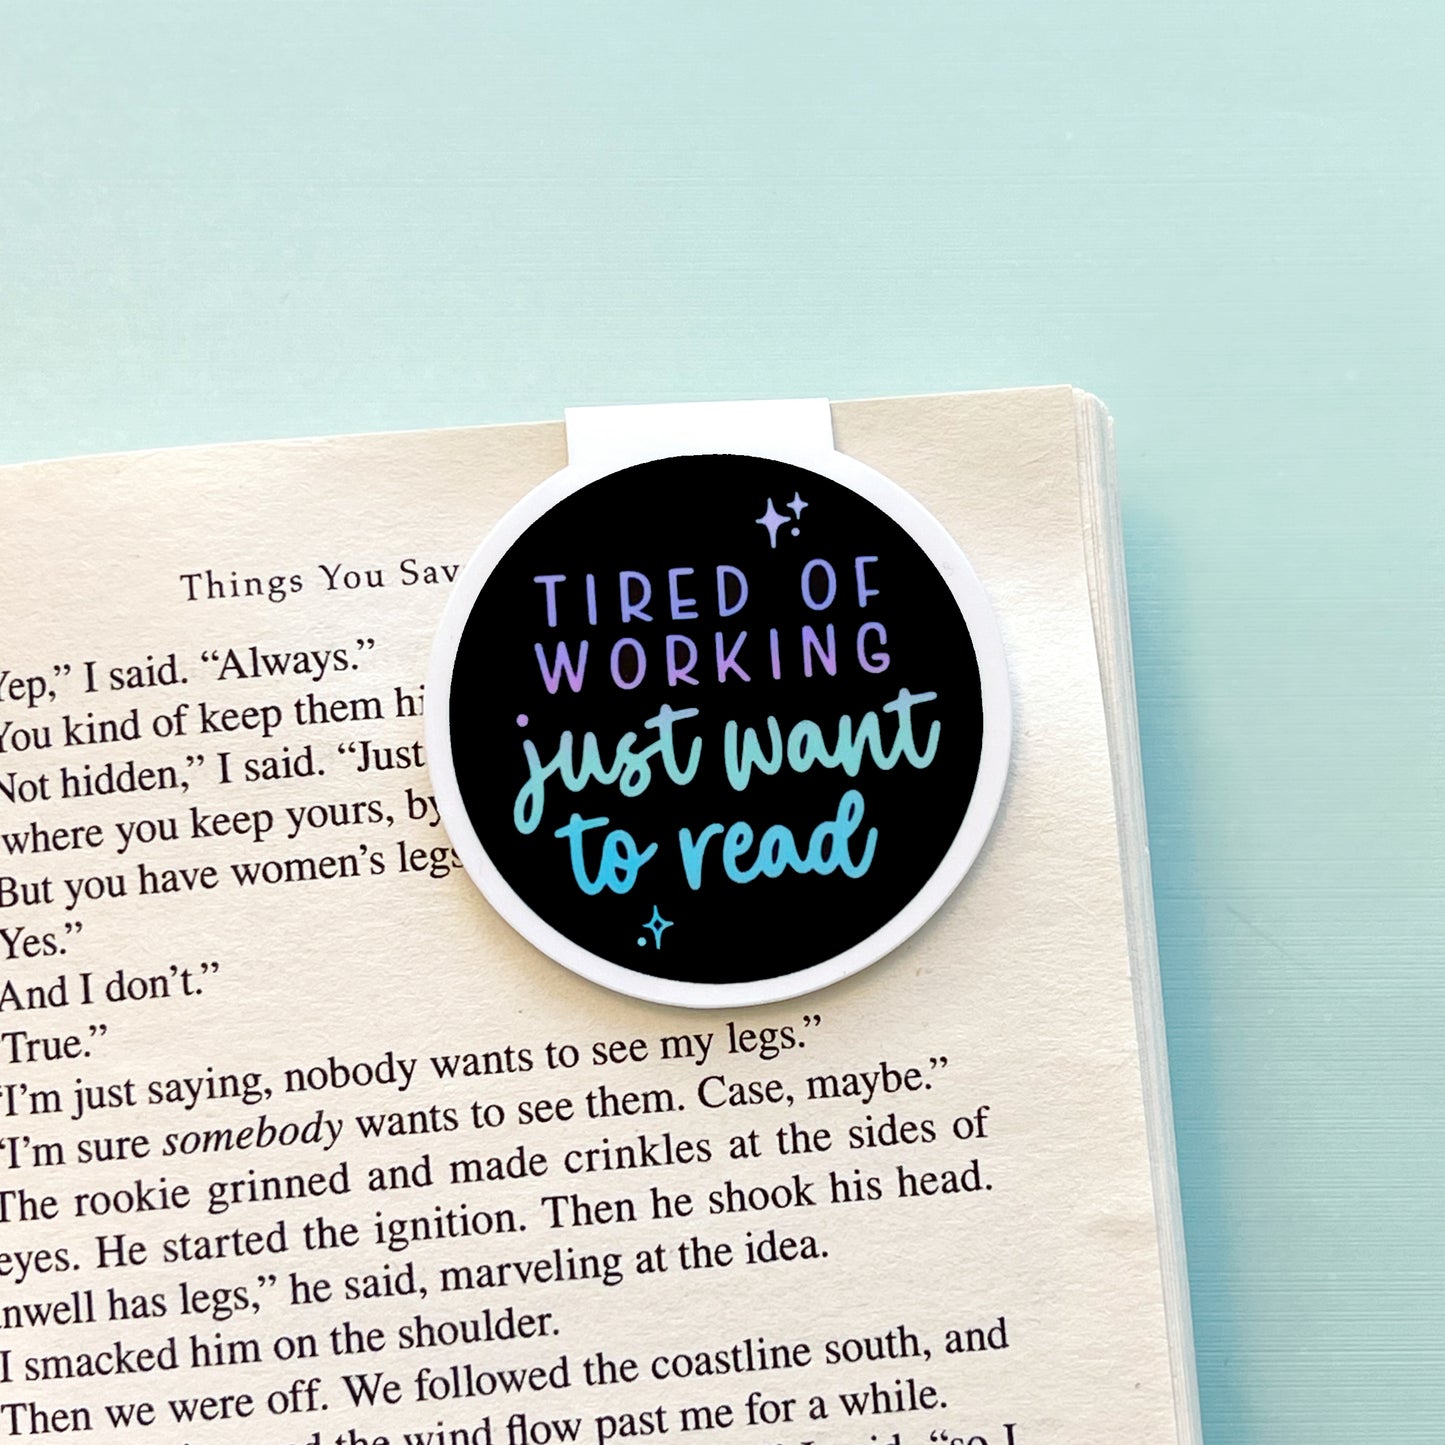 Things You Sav
Yep,” I said. “Always.”
You kind of keep them hi
Not hidden,” I said. “Just
where you keep yours, by
But you have women’s legs
Yes.”
And I don’t.”
True.”
“I’m just saying, nobody wants to see my legs.”
“I’m sure somebody wants to see them. Case, maybe.”
The rookie grinned and made crinkles at the sides of
eyes. He started the ignition. Then he shook his head.
nwell has legs,” he said, marveling at the idea.
I smacked him on the shoulder.
Then we were off. We followed the coastline south, and
the wind flow past me for a while.
“so I
TIRED OF
WORKING
just want
to read